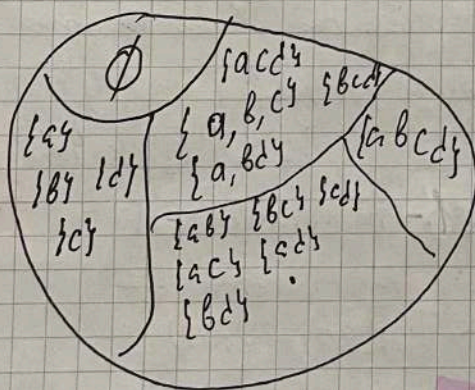 ∅
{acd}
{bcd}
{a, b, c}
{a, bd}
{a b c d}
{a}
{b} {d}
{c}
{ab} {bc} {cd}
{ac} {ad}
{bd}